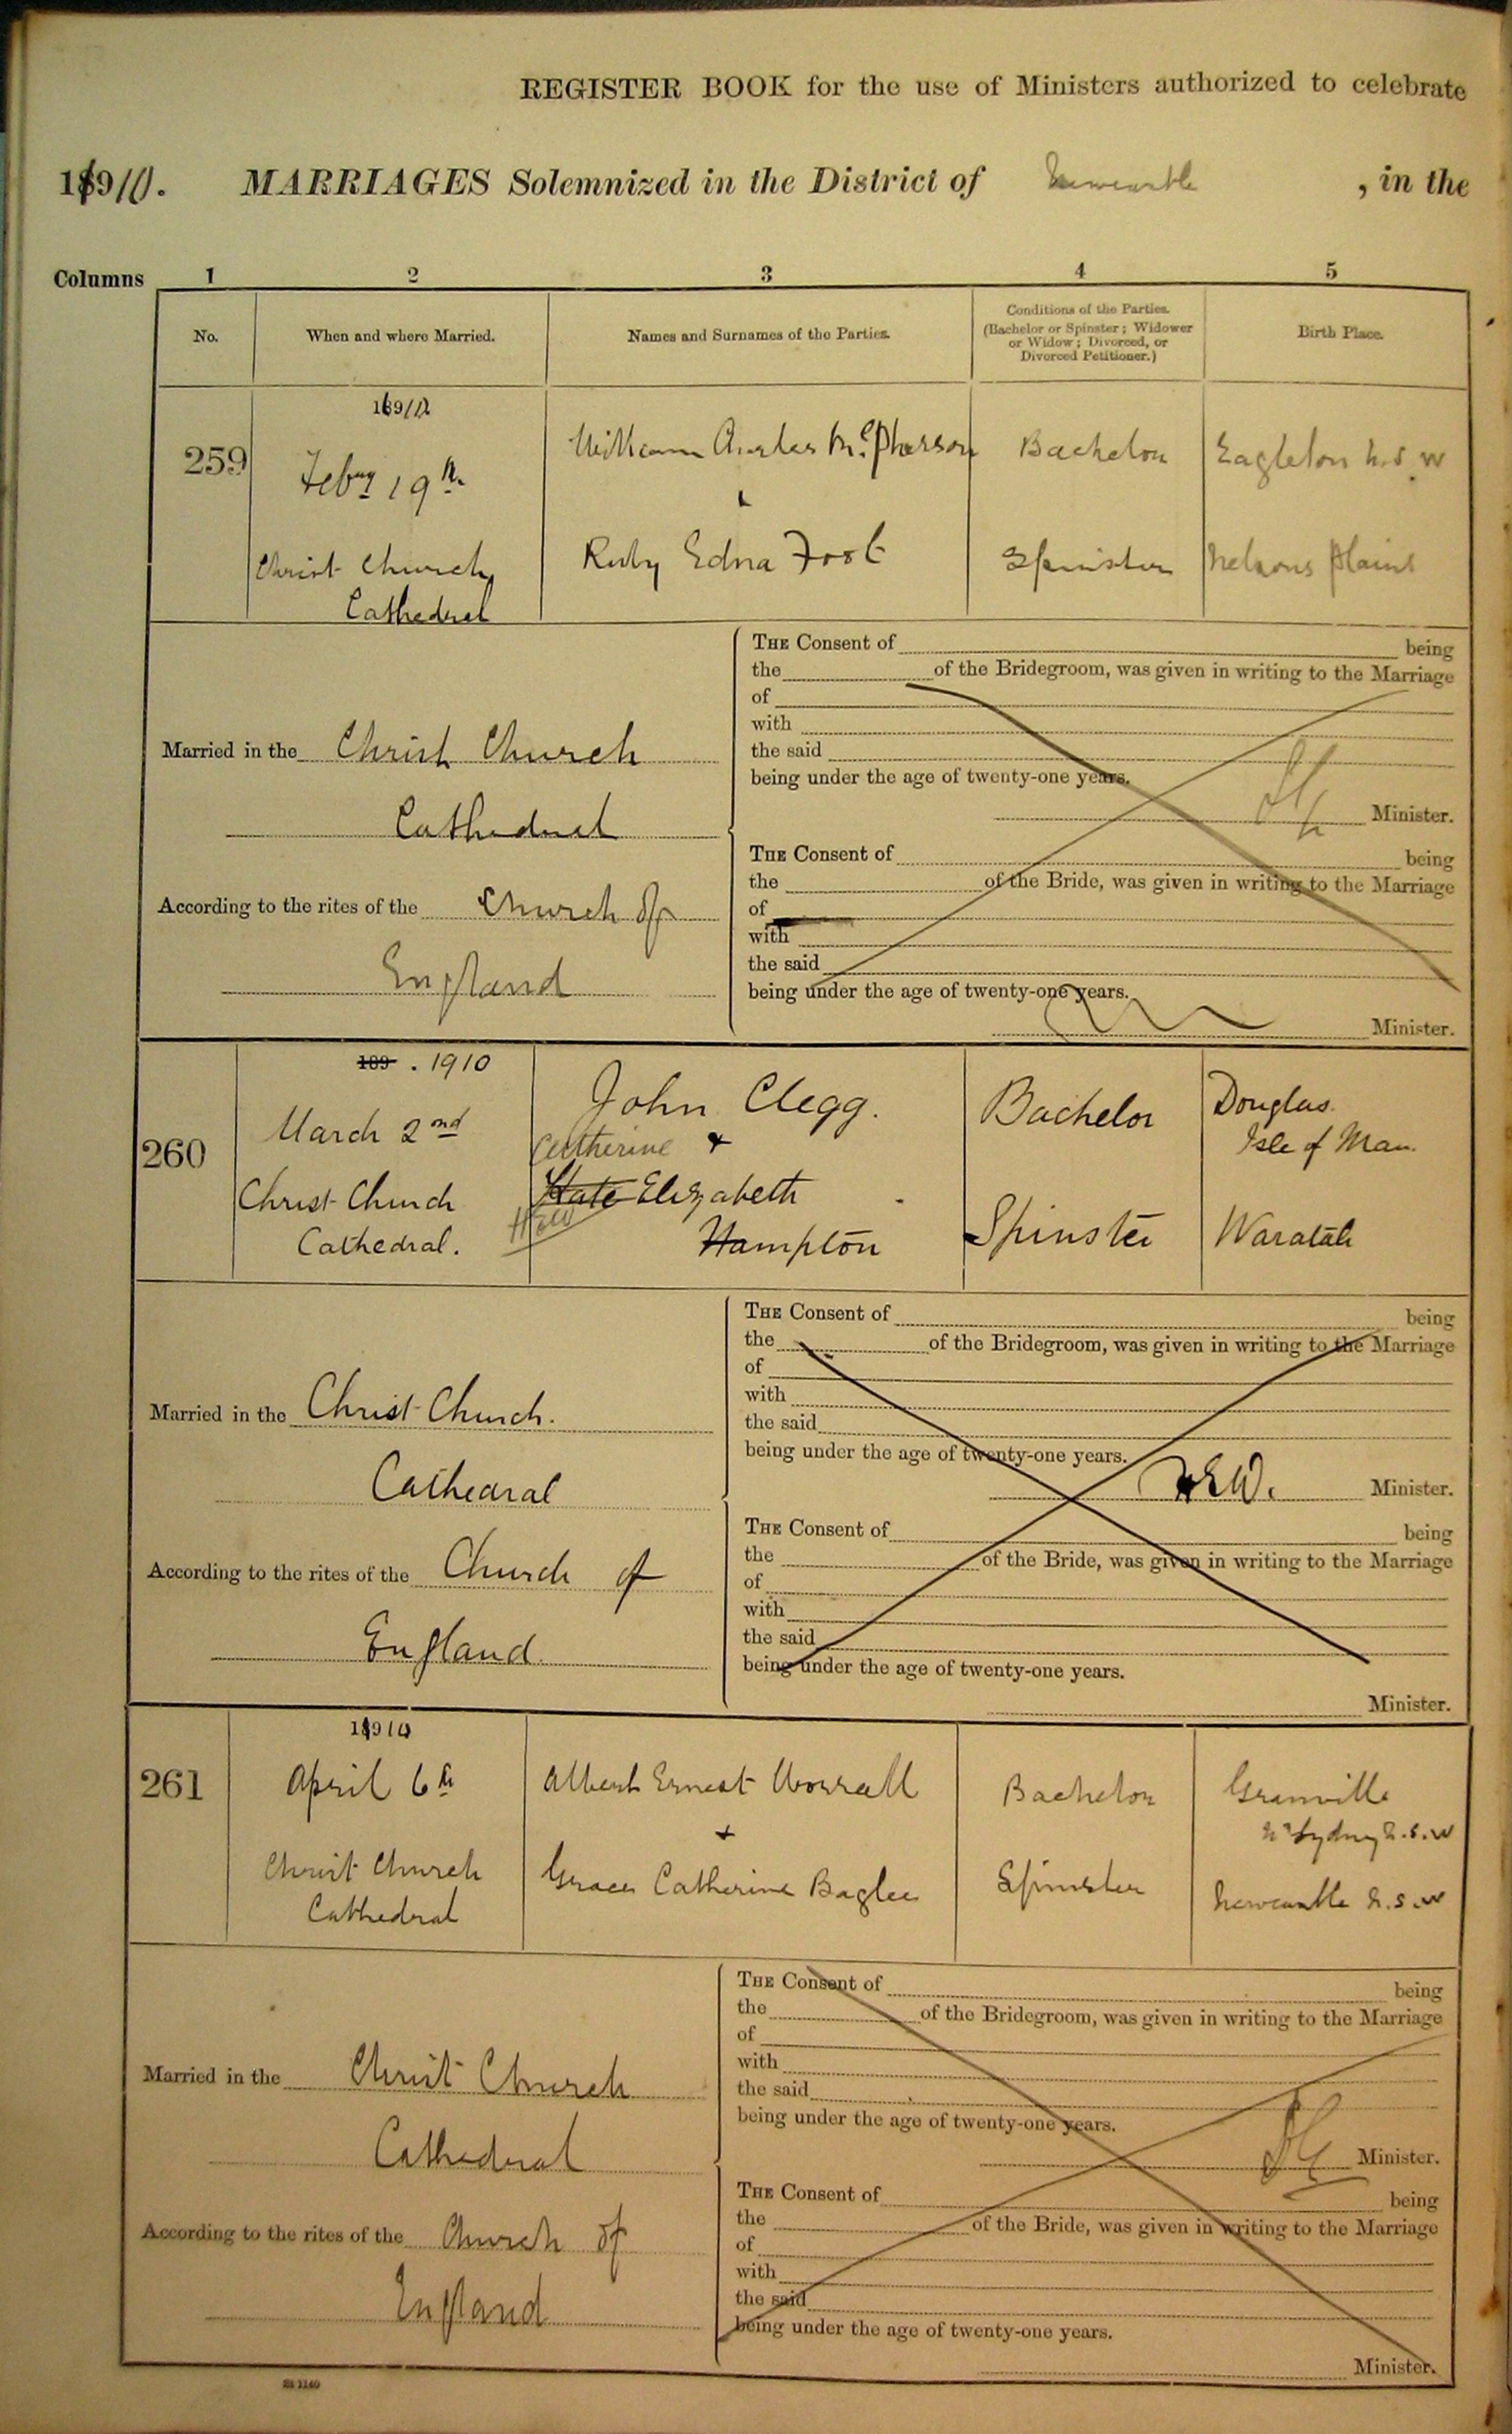 REGISTER BOOK for the use of Ministers authorized to celebrate
1910. MARRIAGES Solemnized in the District of Newcastle, in the
Columns 1 2 3 4 5
No. When and where Married. Names and Surnames of the Parties. Conditions of the Parties. (Bachelor or Spinster; Widower or Widow; Divorced, or Divorced Petitioner.) Birth Place.
1910
259 William Charles McPherson Bachelor Eagleton N.S.W
Feby 19th
&
Ruby Edna Foot Spinster Nelsons Plains
Christ Church
Cathedral
THE Consent of being
the of the Bridegroom, was given in writing to the Marriage
of
with
Married in the Christ Church
the said
being under the age of twenty-one years.
Cathedral
Minister.
THE Consent of being
the of the Bride, was given in writing to the Marriage
According to the rites of the Church of
of
with
the said
England
being under the age of twenty-one years.
Minister.
189 . 1910
John Clegg. Bachelor Douglas
March 2nd
Isle of Man.
260 Catherine &
Christ Church
Kate Elizabeth
Cathedral. Hampton Spinster Waratah
THE Consent of being
the of the Bridegroom, was given in writing to the Marriage
of
with
Married in the Christ Church.
the said
being under the age of twenty-one years.
Cathedral
Minister.
THE Consent of being
the of the Bride, was given in writing to the Marriage
According to the rites of the Church of
of
with
the said
England
being under the age of twenty-one years.
Minister.
1910
261 April 6th Albert Ernest Worrall Bachelor Granville
Nr Sydney N.S.W
+
Christ Church
Grace Catherine Baglee Spinster Newcastle N.S.W
Cathedral
THE Consent of being
the of the Bridegroom, was given in writing to the Marriage
of
with
Married in the Christ Church
the said
being under the age of twenty-one years.
Cathedral
Minister.
THE Consent of being
the of the Bride, was given in writing to the Marriage
According to the rites of the Church of
of
with
the said
England
being under the age of twenty-one years.
Minister.